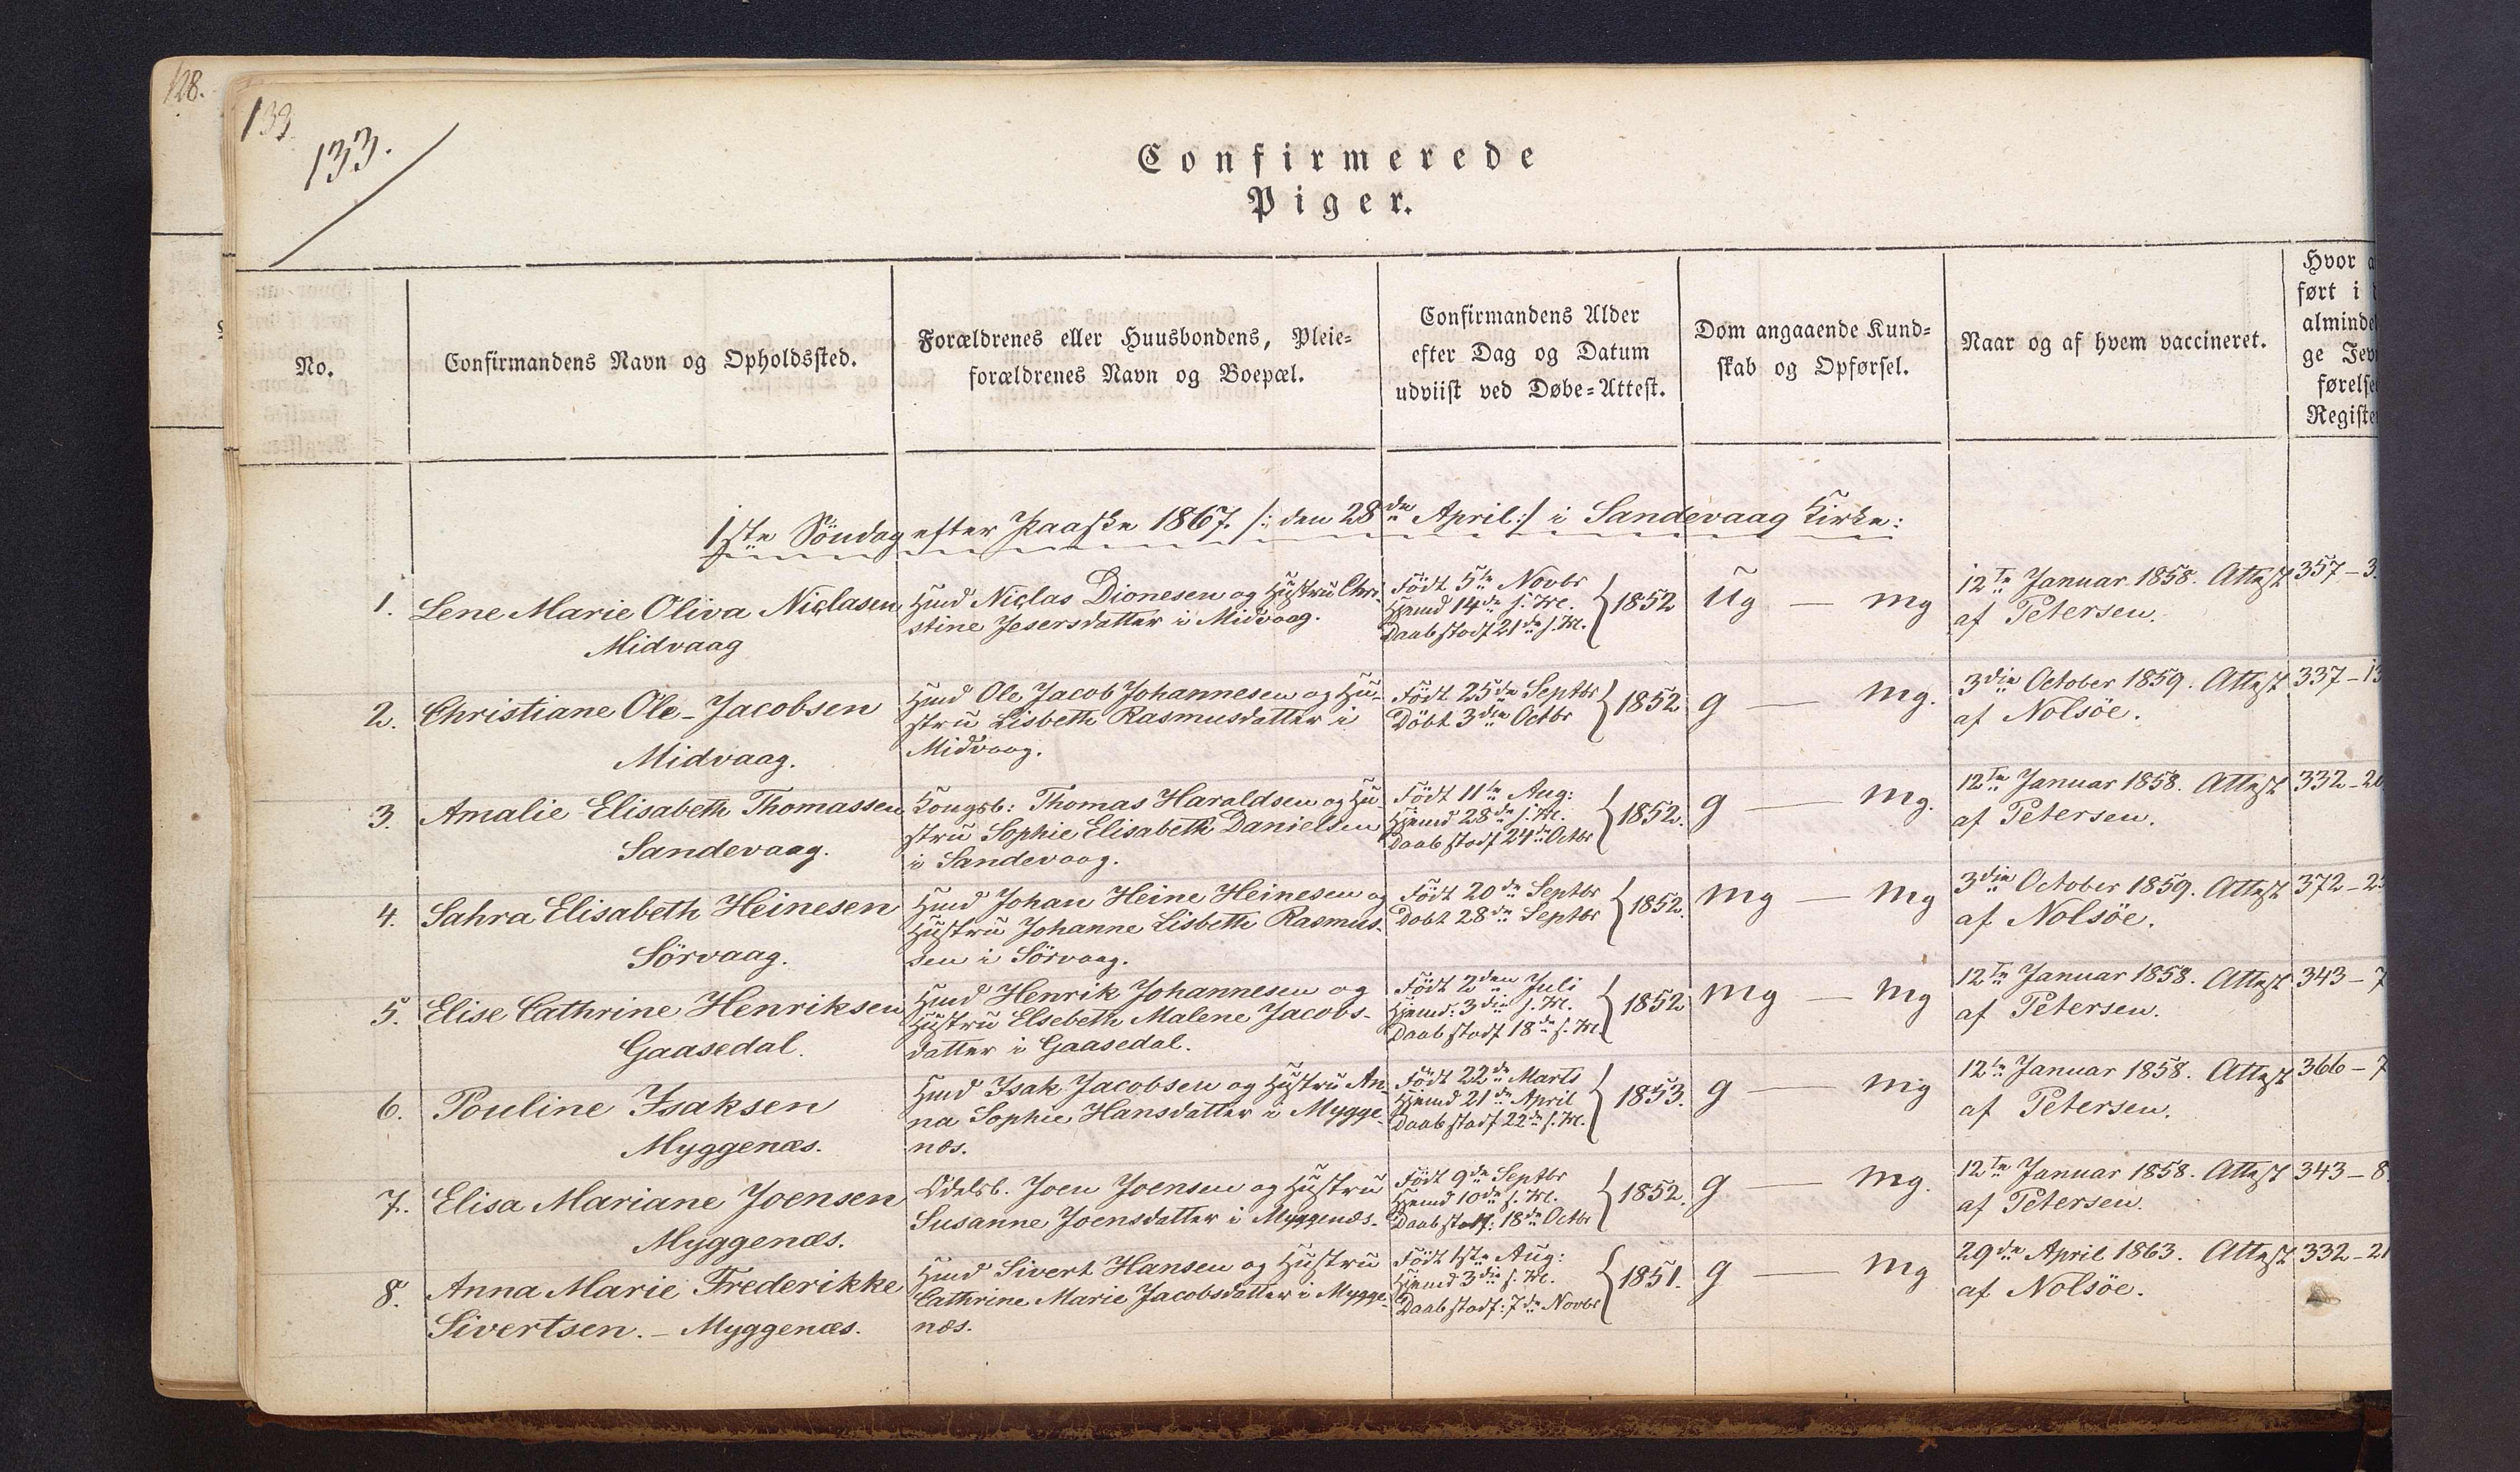 128.
133
133.
Confirmerede
Piger.
No.
Confirmandens Navn og Opholdssted.
Forældrenes eller Huusbondens, Pleie-
forældrenes Navn og Boepæl.
Confirmandens Alder
efter Dag og Datum
udviist ved Døbe-Attest.
Dom angaaende Kund-
skab og Opførsel.
Naar og af hvem vaccineret.
Hvor
ført i
almindel
ge Jev
førelse
Register
1ste Söndag efter Paaske 1867. /: den 28de April :/ i Sandevaag Kirke:
1.
Lene Marie Oliva Niclasen
Midvaag
Hmd Niclas Dionesen og Hustru Chri-
stine Jesersdatter i Midvaag.
Födt 5te Novbr
Hjemd 14de s. M.
Daab stadf 21de s. M.
1852
Ug — mg
12te Januar 1858. Attest
af Petersen.
357-3
2.
Christiane Ole-Jacobsen
Midvaag.
Hmd Ole Jacob Johannesen og Hu-
stru Lisbeth Rasmusdatter i
Midvaag.
Födt 25de Septbr
Döbt 3die Octbr
1852
g — mg.
3die October 1859. Attest
af Nolsöe.
337-13
3.
Amalie Elisabeth Thomassen
Sandevaag.
Kongsb: Thomas Haraldsen og Hu-
stru Sophie Elisabeth Danielsen
i Sandevaag.
Födt 11te Aug:
Hjemd 28de s. M.
Daab stadf 24de Octbr
1852.
g — mg.
12te Januar 1858. Attest
af Petersen.
332-20
4.
Sahra Elisabeth Heinesen
Sörvaag.
Hmd Johan Heine Heinesen og
Hustru Johanne Lisbeth Rasmus-
sen i Sörvaag.
Födt 20de Septbr
Döbt 28de Septbr
1852.
mg — mg
3die October 1859. Attest
af Nolsöe.
372-2
5.
Elise Cathrine Henriksen
Gaasedal.
Hmd Henrik Johannesen og
Hustru Elsebeth Malene Jacobs-
datter i Gaasedal.
Födt 2den Juli
Hjemd: 3die s. M.
Daab stadf 18de s. M.
1852
mg — mg
12te Januar 1858. Attest
af Petersen.
343-7
6.
Pouline Isaksen
Myggenæs.
Hmd Isak Jacobsen og Hustru An-
na Sophie Hansdatter i Mygge-
næs.
Födt 22de Marts
Hjemd 21de April
Daab stadf 22de s. M.
1853.
g — mg
12te Januar 1858. Attest
af Petersen.
366-7
7.
Elisa Mariane Joensen
Myggenæs.
Odelsb. Joen Joensen og Hustru
Susanne Joensdatter i Myggenæs.
Födt 9de Septbr
Hjemd 10de s. M.
Daab stadf: 18de Octbr
1852.
g — mg.
12te Januar 1858. Attest
af Petersen.
343-8
8.
Anna Marie Frederikke
Sivertsen. - Myggenæs.
Hmd Sivert Hansen og Hustru
Cathrine Marie Jacobsdatter i Mygge-
næs.
Födt 1ste Aug:
Hjemd 3die s. M.
Daab stadf: 7de Novbr
1851.
g — mg
29de April 1863. Attest
af Nolsöe.
332-21